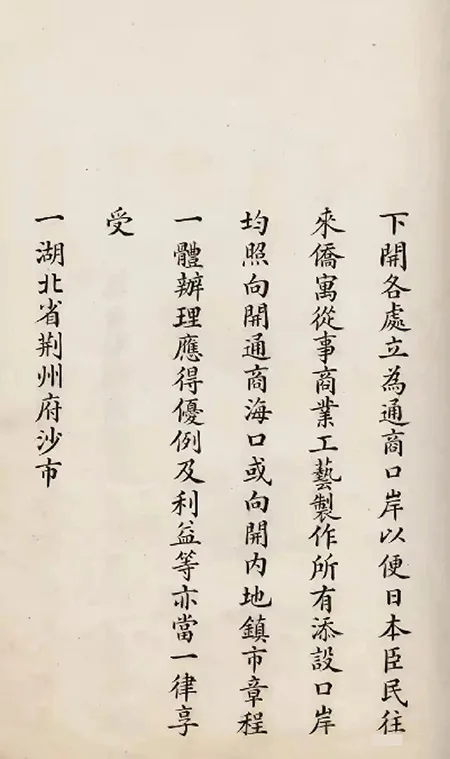 下開各處立為通商口岸以便日本臣民往
來僑寓從事商業工藝製作所有添設口岸
均照向開通商海口或向開內地鎮市章程
一體辦理應得優例及利益等亦當一律享
受
一湖北省荆州府沙市